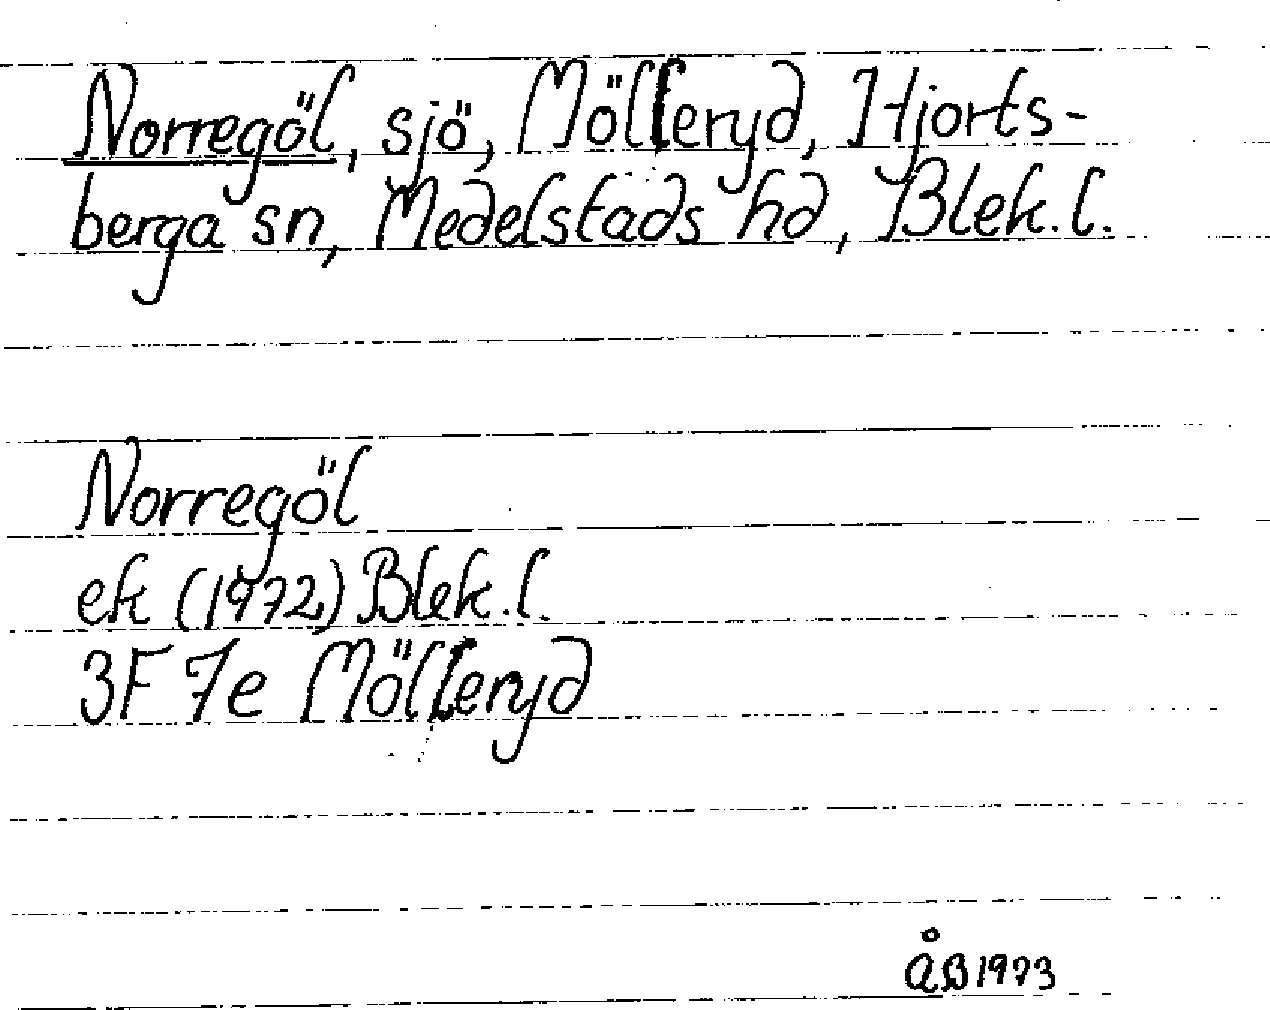 Norregöl, sjö, Mölleryd, Hjorts-
berga sn, Medelstads hd, Blek.l.
Norregöl
ek (1972) Blek.l.
3F 7e Mölleryd
ÅB 1973